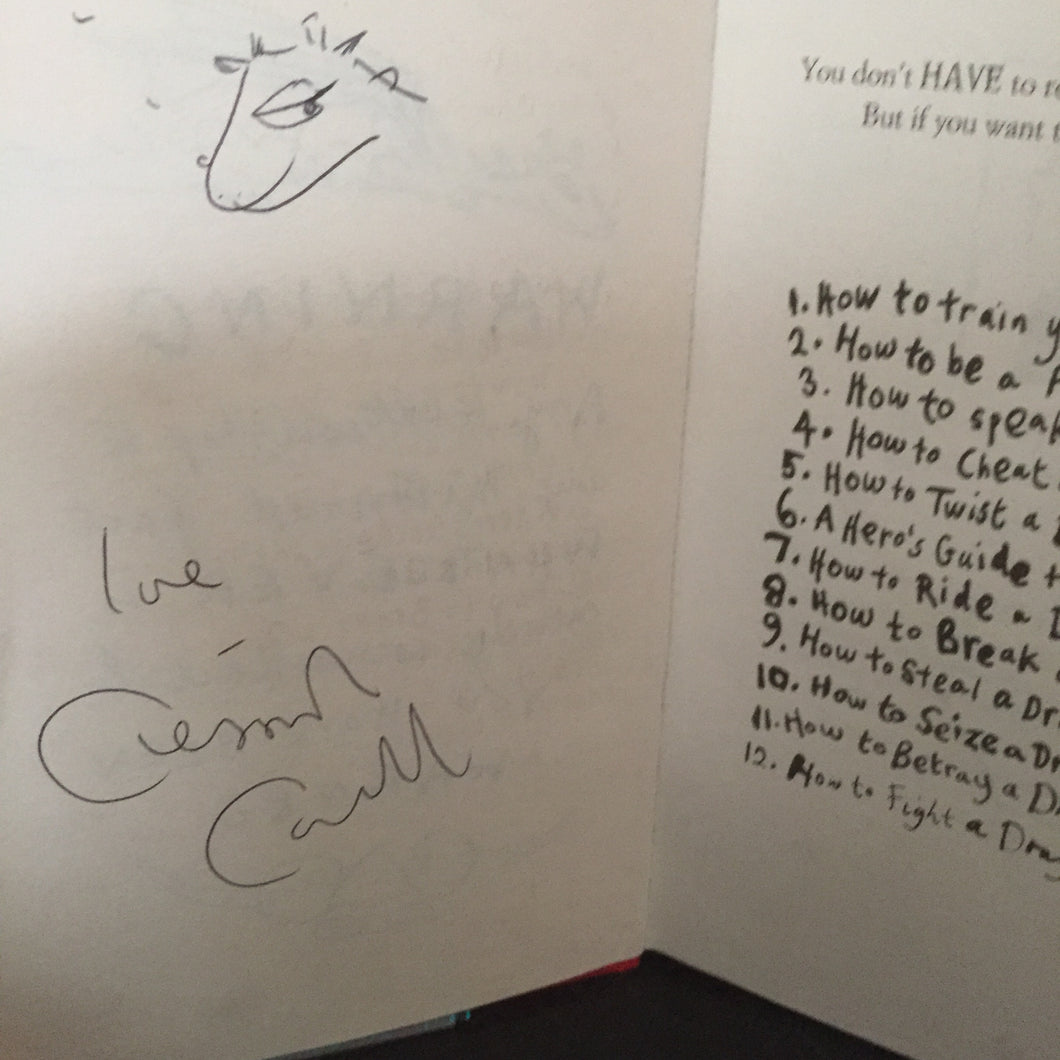 love
Cressida
Cowell
You don't HAVE to re
But if you want t
1. How to train y
2. How to be a P
3. How to speak
4. How to Cheat
5. How to Twist a
6. A Hero's Guide t
7. How to Ride a D
8. How to Break
9. How to Steal a Dr
10. How to Seize a Dr
11. How to Betray a D
12. How to Fight a Drag